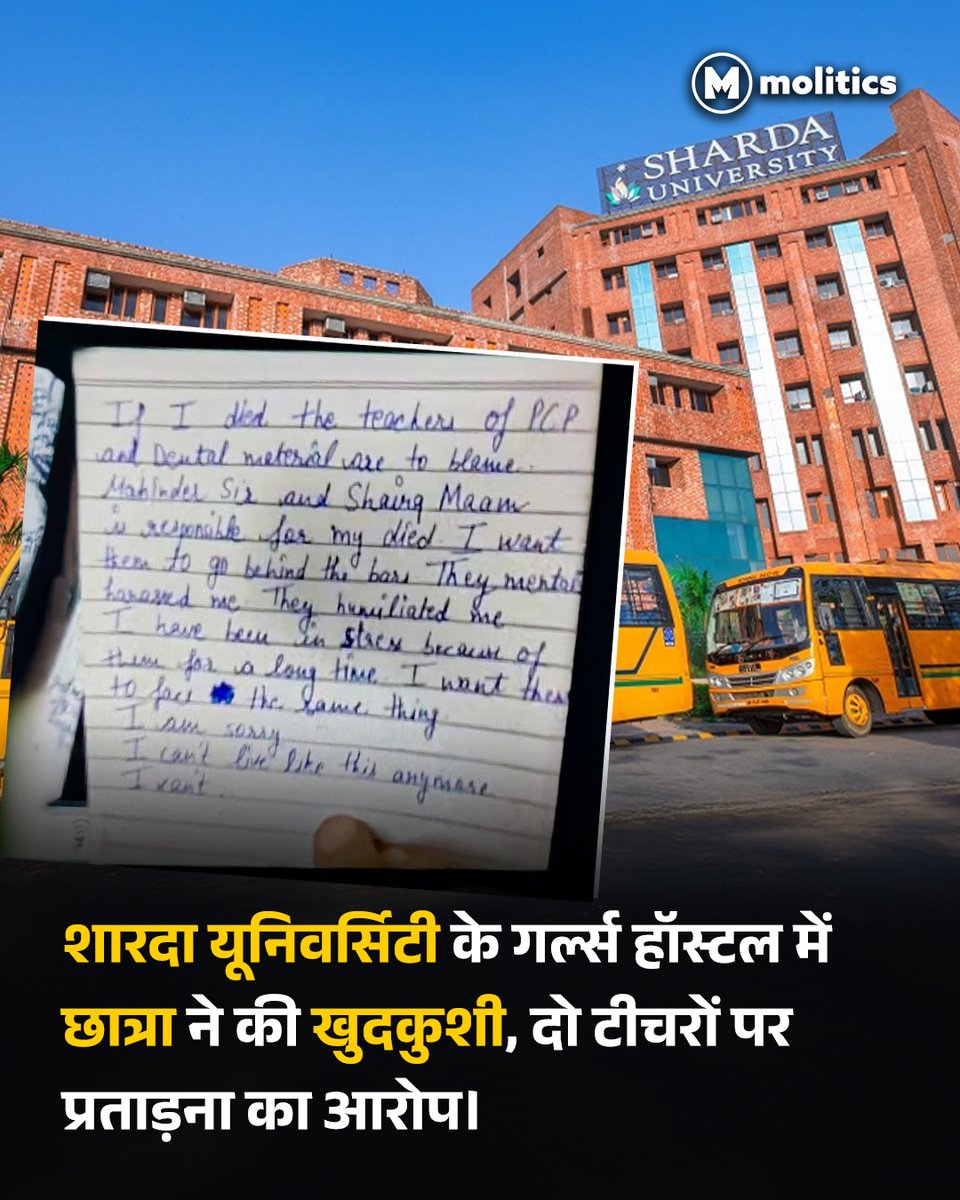 molitics
SHARDA
UNIVERSITY
If I died the teachers of PCP
and Dental material are to blame.
Mahinder Sir and Shairg Maam
is responsible for my died. I want
them to go behind the bars They mental
harassed me They humiliated me
I have been in stress because of
them for a long time. I want them
to face the same thing
I am sorry
I can't live like this anymore
I can't.
शारदा यूनिवर्सिटी के गर्ल्स हॉस्टल में
छात्रा ने की खुदकुशी, दो टीचरों पर
प्रताड़ना का आरोप।